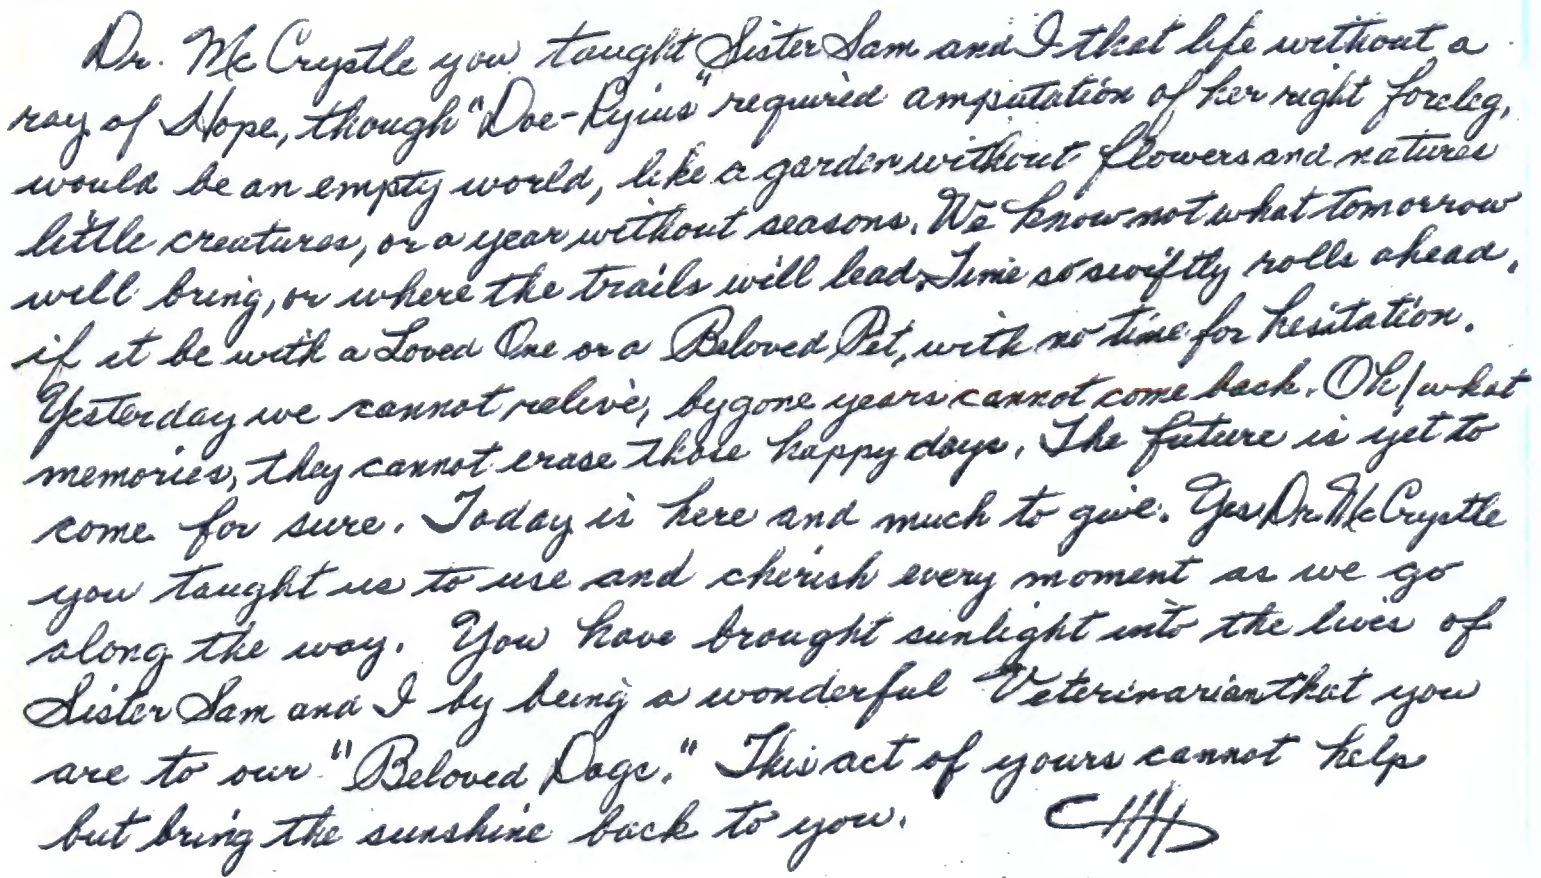 Dr. McCrystle you taught Sister Sam and I that life without a
ray of Hope, though "Doe-Ryius" required amputation of her right foreleg,
would be an empty world, like a garden without flowers and natures
little creatures, or a year without seasons. We know not what tomorrow
will bring, or where the trails will lead. Time so swiftly rolls ahead,
if it be with a Loved One or a Beloved Pet, with no time for hesitation.
Yesterday we cannot relive, bygone years cannot come back. Oh! what
memories, they cannot erase those happy days. The future is yet to
come for sure. Today is here and much to give. Yes Dr. McCrystle
you taught us to use and cherish every moment as we go
along the way. You have brought sunlight into the lives of
Sister Sam and I by being a wonderful Veterinarian that you
are to our "Beloved Dogs." This act of yours cannot help
but bring the sunshine back to you.